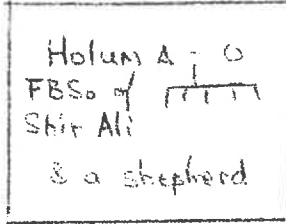 Holum A - O
FBSo of
Shir Ali
& a shepherd